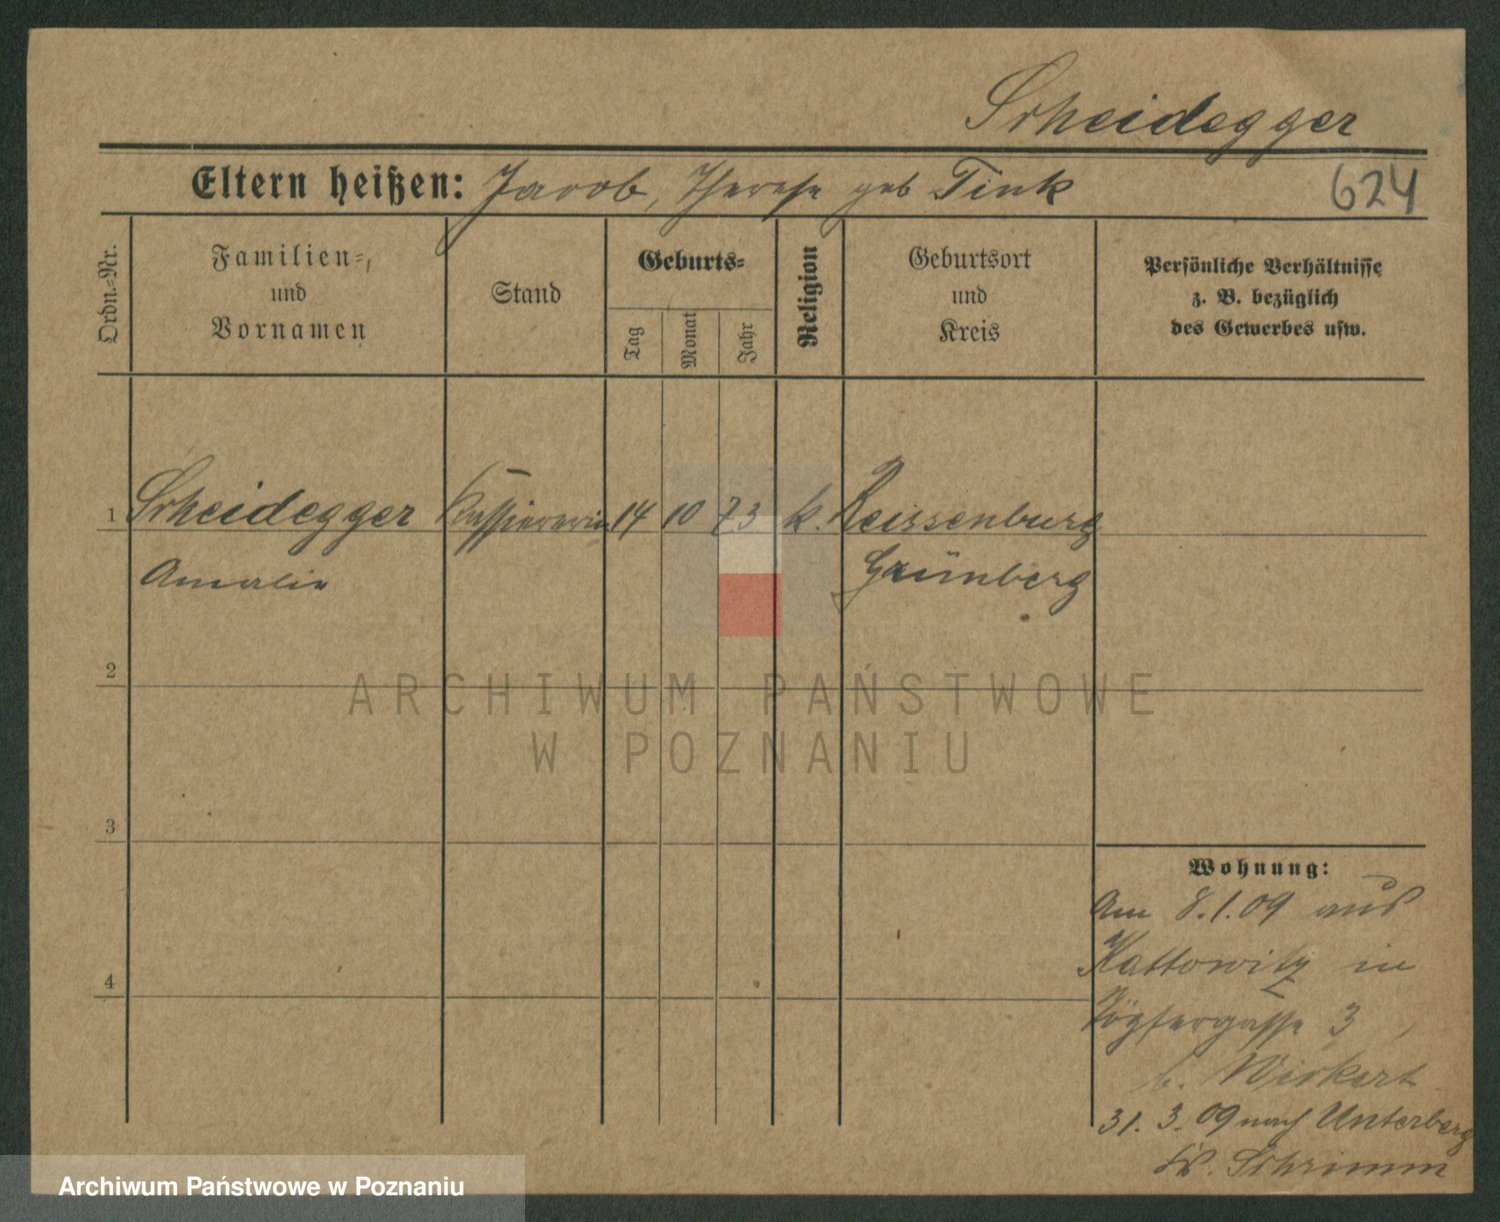 Scheidegger
Eltern heißen: Jacob, Therese geb Fink
624
Ordn.-Nr.
Familien-,
und
Vornamen
Stand
Geburts-
Tag
Monat
Jahr
Religion
Geburtsort
und
Kreis
Persönliche Verhältnisse
z. B. bezüglich
des Gewerbes usw.
1 Scheidegger Kassiererin 14 10 73 k. Reissenburg
Amalie Grünberg
2
ARCHIWUM PAŃSTWOWE
W POZNANIU
3
Wohnung:
Am 8.1.09 aus
Kattowitz in
4
Töpfergasse 3,
b. Wickert
31. 3. 09 nach Unterberg
Kr. Schrimm
Archiwum Państwowe w Poznaniu